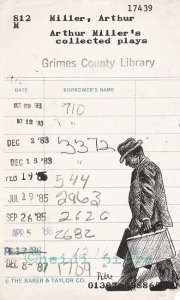 17439
812 Miller, Arthur
M
Arthur Miller's
collected plays
Grimes County Library
DATE BORROWER'S NAME
OCT 29 '83 710
NOV 12 '83 "
DEC 2 '83 3372
DEC 16 '83 "
FEB 19 '85 544
JUL 19 '85 2963
SEP 26 '85 2620
APR 5 '86 2682
DEC 8 '87 1709
© THE BAKER & TAYLOR CO.